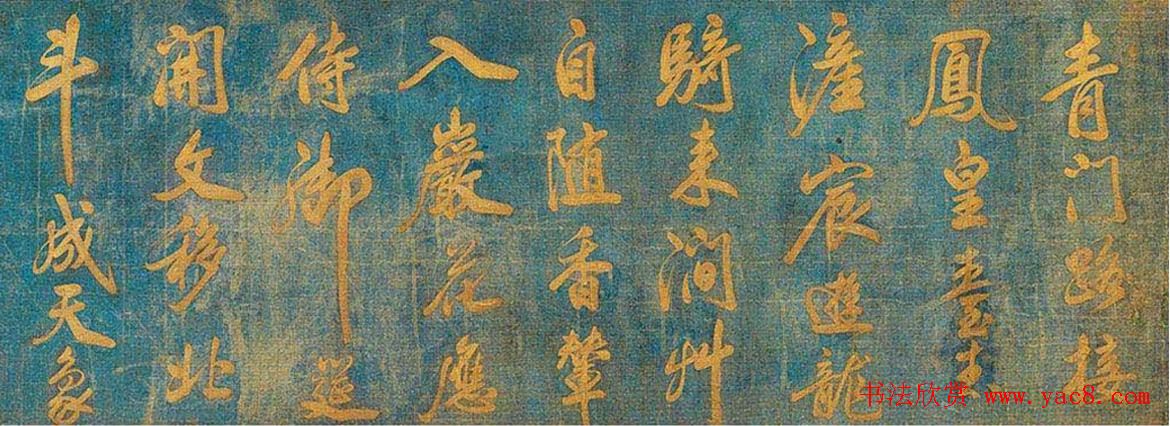 青门路接
鳳皇臺素
滻宸遊龍
騎来澗艸
自随香輦
入巖花應
待御筵
開文移北
斗成天象
书法欣赏 www.yac8.com